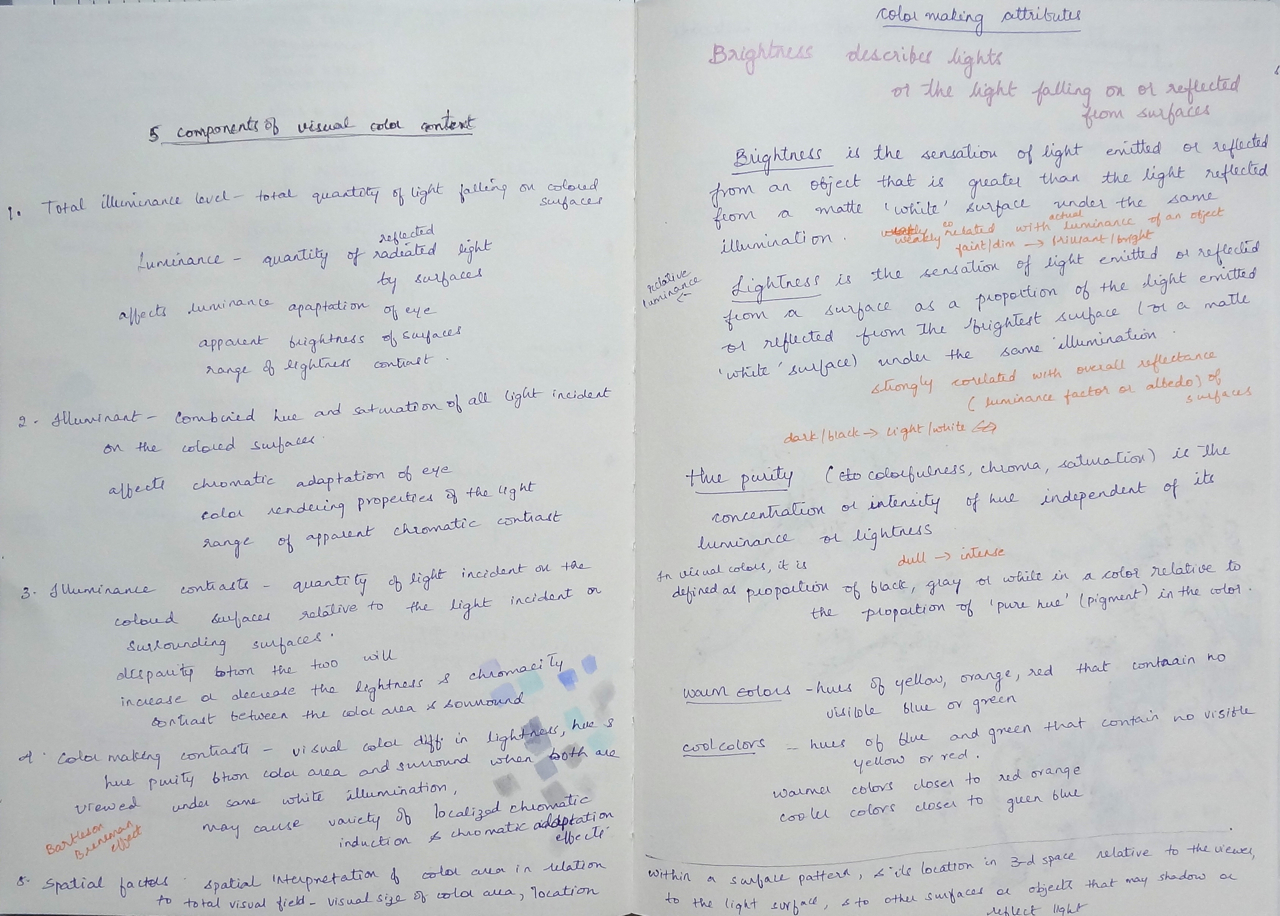 5 components of visual color context
1. Total illuminance level - total quantity of light falling on colored
surfaces
Luminance - quantity of radiated light
reflected
by surfaces
affects luminance apaptation of eye
apparent brightness of surfaces
range of lightness contrast.
2. Illuminant - combined hue and saturation of all light incident
on the colored surfaces.
affects chromatic adaptation of eye
color rendering properties of the light
range of apparent chromatic contrast
3. Illuminance contrasts - quantity of light incident on the
colored surfaces relative to the light incident on
surrounding surfaces.
disparity btwn the two will
increase or decrease the lightness & chromacity
contrast between the color area & surround
4. Color making contrasts - visual color diff in lightness, hue &
hue purity btwn color area and surround when both are
viewed under same white illumination,
may cause variety of localized chromatic
induction & chromatic adaptation
effects
Bartleson
Breneman
effect
5. Spatial factors. spatial interpretation of color area in relation
to total visual field - visual size of color area, location
color making attributes
Brightness describes lights
or the light falling on or reflected
from surfaces
Brightness is the sensation of light emitted or reflected
from an object that is greater than the light reflected
from a matte 'white' surface under the same
illumination.
weakly corelated with actual luminance of an object
faint/dim → brilliant/bright
relative
luminance
←
Lightness is the sensation of light emitted or reflected
from a surface as a proportion of the light emitted
or reflected from the brightest surface (or a matte
'white' surface) under the same illumination.
strongly corelated with overall reflectance
(luminance factor or albedo) of
surfaces
dark/black → light/white
Hue purity (colorfulness, chroma, saturation) is the
concentration or intensity of hue independent of its
luminance or lightness
dull → intense
In visual colors, it is
defined as proportion of black, gray or white in a color relative to
the proportion of 'pure hue' (pigment) in the color.
warm colors - hues of yellow, orange, red that contain no
visible blue or green
cool colors - hues of blue and green that contain no visible
yellow or red.
warmer colors closer to red orange
cooler colors closer to green blue
within a surface pattern, & its location in 3-d space relative to the viewer,
to the light surface, & to other surfaces or objects that may shadow or
reflect light